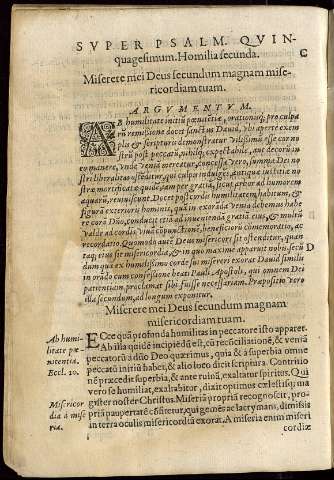 SVPER PSALM. QVIN-
quagesimum. Homilia secunda.
C
Miserere mei Deus secundum magnam mise-
ricordiam tuam.
ARGVMENTVM.
AB humilitate initiū pœnitētiæ, orationisq; pro culpa
rū remißione docet sanctus Dauid, vbi aperte exem
plis & scripturis demonstratur vilißimū esse cor no
strū post peccatū, nihilq; expectabile, aut decorū in
eo manere, vnde venia mereatur, concessa vero, summæ Dei no
stri liberalitas ostēditur, qui culpa indulget, antiquæ iustitiæ no
stræ mortificatæ quidē, iam per gratiā, sicut arbor ad humorem
aquarū, reuiuiscunt. Docet postq; humilitatem, habitum, &
figura exterioris hominis, qua in exorāda venia debemus habe
re corā Dño, conducere etiā ad inueniendā gratiā eius, & multū
valere ad cordis viuā cōpunctione, beneficiorū cōmemoratio, ac
recordatio. Quomodo autē Deus misericors sit ostēditur, quan
taq; eius sit misericordia, & in quo maxime apparet nobis, secū
D
dum qua ex humilißimo corde sui misereri exorat Dauid simili
in orādo cum confeßione beati Pauli Apostoli, qui omnem Dei
patientiam proclamat sibi fuisse necessariam. Præpositio vero
illa secundum, ad longum exponitur.
Miserere mei Deus secundum magnam
misericordiam tuam.
Ab hu-
militate pœ-
nitentia.
Eccl. 10.
ECce quā profonda humilitas in peccatore isto apparet.
Ab illa quidē incipiēdū est, cū recōciliationē, & veniā
peccatorū à dño Deo quærimus, quia & à superbia omne
peccatū initiū habet, & alio loco dicit scriptura. Contritio
nē præcedit superbia, & ante ruinā, exaltatur spiritus. Qui
vero se humiliat, exaltabitur, dixit optimus cælestisq; ma
Misericor
dia à mise
ria.
gister noster Christus. Miseriā propriā recognoscit, pro-
priā paupertatē cōfitetur, qui gemēs ac lacrymans, dimissis
in terra oculis misericordiā exorat. A miseria enim miseri
cordiæ